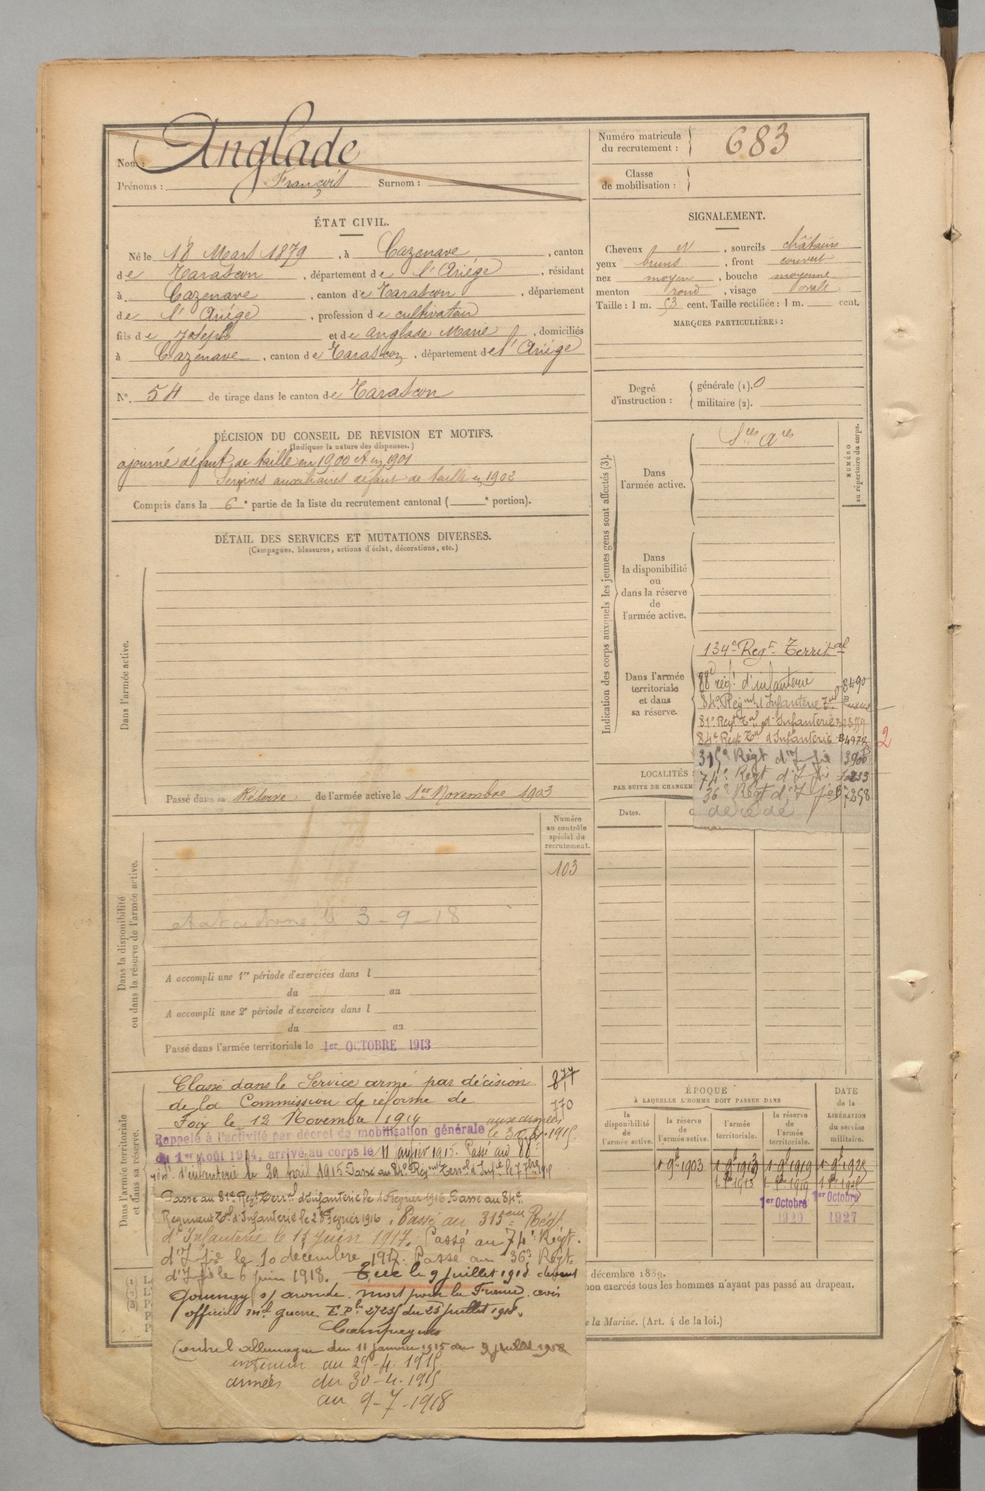 Nom : Anglade
Prénoms : François Surnom :
Numéro matricule du recrutement : 683
Classe de mobilisation :
ÉTAT CIVIL.
Né le 18 Mars 1879, à Cazenave, canton
de Tarascon, département de l'Ariège, résidant
à Cazenave, canton de Tarascon, département
de l'Ariège, profession de cultivateur
fils de Joseph et de Anglade Marie, domiciliés
à Cazenave, canton de Tarascon, département de l'Ariège
N° 54 de tirage dans le canton de Tarascon
SIGNALEMENT.
Cheveux N, sourcils châtains
yeux bruns, front couvert
nez moyen, bouche moyenne
menton rond, visage ovale
Taille : 1 m. 53 cent. Taille rectifiée : 1 m. cent.
MARQUES PARTICULIÈRES :
Degré d'instruction : générale (1). 0
militaire (2).
DÉCISION DU CONSEIL DE REVISION ET MOTIFS.
(Indiquer la nature des dispenses.)
ajourné défaut de taille en 1900 et en 1901
Services auxiliaires défaut de taille en 1902
Compris dans la 6e partie de la liste du recrutement cantonal ( e portion).
DÉTAIL DES SERVICES ET MUTATIONS DIVERSES.
(Campagnes, blessures, actions d'éclat, décorations, etc.)
Dans l'armée active.
Passé dans la Réserve de l'armée active le 1er Novembre 1903
Indication des corps auxquels les jeunes gens sont affectés (3).
NUMÉRO au répertoire du corps.
Dans l'armée active.
Sces Ares
Dans la disponibilité ou dans la réserve de l'armée active.
Dans l'armée territoriale et dans sa réserve.
134e Regt Territal
88e régt d'infanterie 8490
84e Régimt d'Infanterie Tal
81e Regt Tal d'Infanterie
84e Regt Tal d'Infanterie
2
315e Régt d'Ifie
74e Régt d'Ifie
36e Régt d'Ifie 7258
décédé
LOCALITÉS
PAR SUITE DE CHANGEM
Dates.
Dans la disponibilité ou dans la réserve de l'armée active.
Numéro au contrôle spécial du recrutement.
103
3-9-18
A accompli une 1re période d'exercices dans l
du au
A accompli une 2e période d'exercices dans l
du au
Passé dans l'armée territoriale le 1er OCTOBRE 1913
Dans l'armée territoriale et dans sa réserve.
Classé dans le Service armé par décision 877
de la Commission de réforme de 770
Foix le 12 Novembre 1914
aux armées
Rappelé à l'activité par décret de mobilisation générale
du 1er Août 1914, arrivé au corps le 11 janvier 1915. Passé au 88e
régt d'infanterie le 29 avril 1915
Passé au 81e Regt Terral d'Infanterie le 1 Février 1916 Passé au 84e
Regiment Tal d'Infanterie le 28 Février 1916. Passé au 315eme Régt
d'Infanterie le 17 juin 1917. Passé au 74e Régt
d'Ifie le 10 décembre 1917. Passé au 36e Régt
d'Ifie le 6 juin 1918. Tué le 9 juillet 1918 devant
Gournay s/ aronde, mort pour la France, avis
officiel mel guerre du 25 juillet 1918.
Campagnes
Contre l'allemagne du 11 janvier 1915 au 9 juillet 1918
intérieur au 29-4-1915
armées du 30-4-1915
au 9-7-1918
ÉPOQUE
À LAQUELLE L'HOMME DOIT PASSER DANS
DATE de la LIBÉRATION du service militaire.
la disponibilité de l'armée active.
la réserve de l'armée active.
l'armée territoriale.
la réserve de l'armée territoriale.
1 9bre 1903 1 9bre 1913 1 9bre 1919 1 9bre 1925
1er Octobre 1920 1er Octobre 1927
décembre 1889.
non exercés tous les hommes n'ayant pas passé au drapeau.
la Marine. (Art. 4 de la loi.)